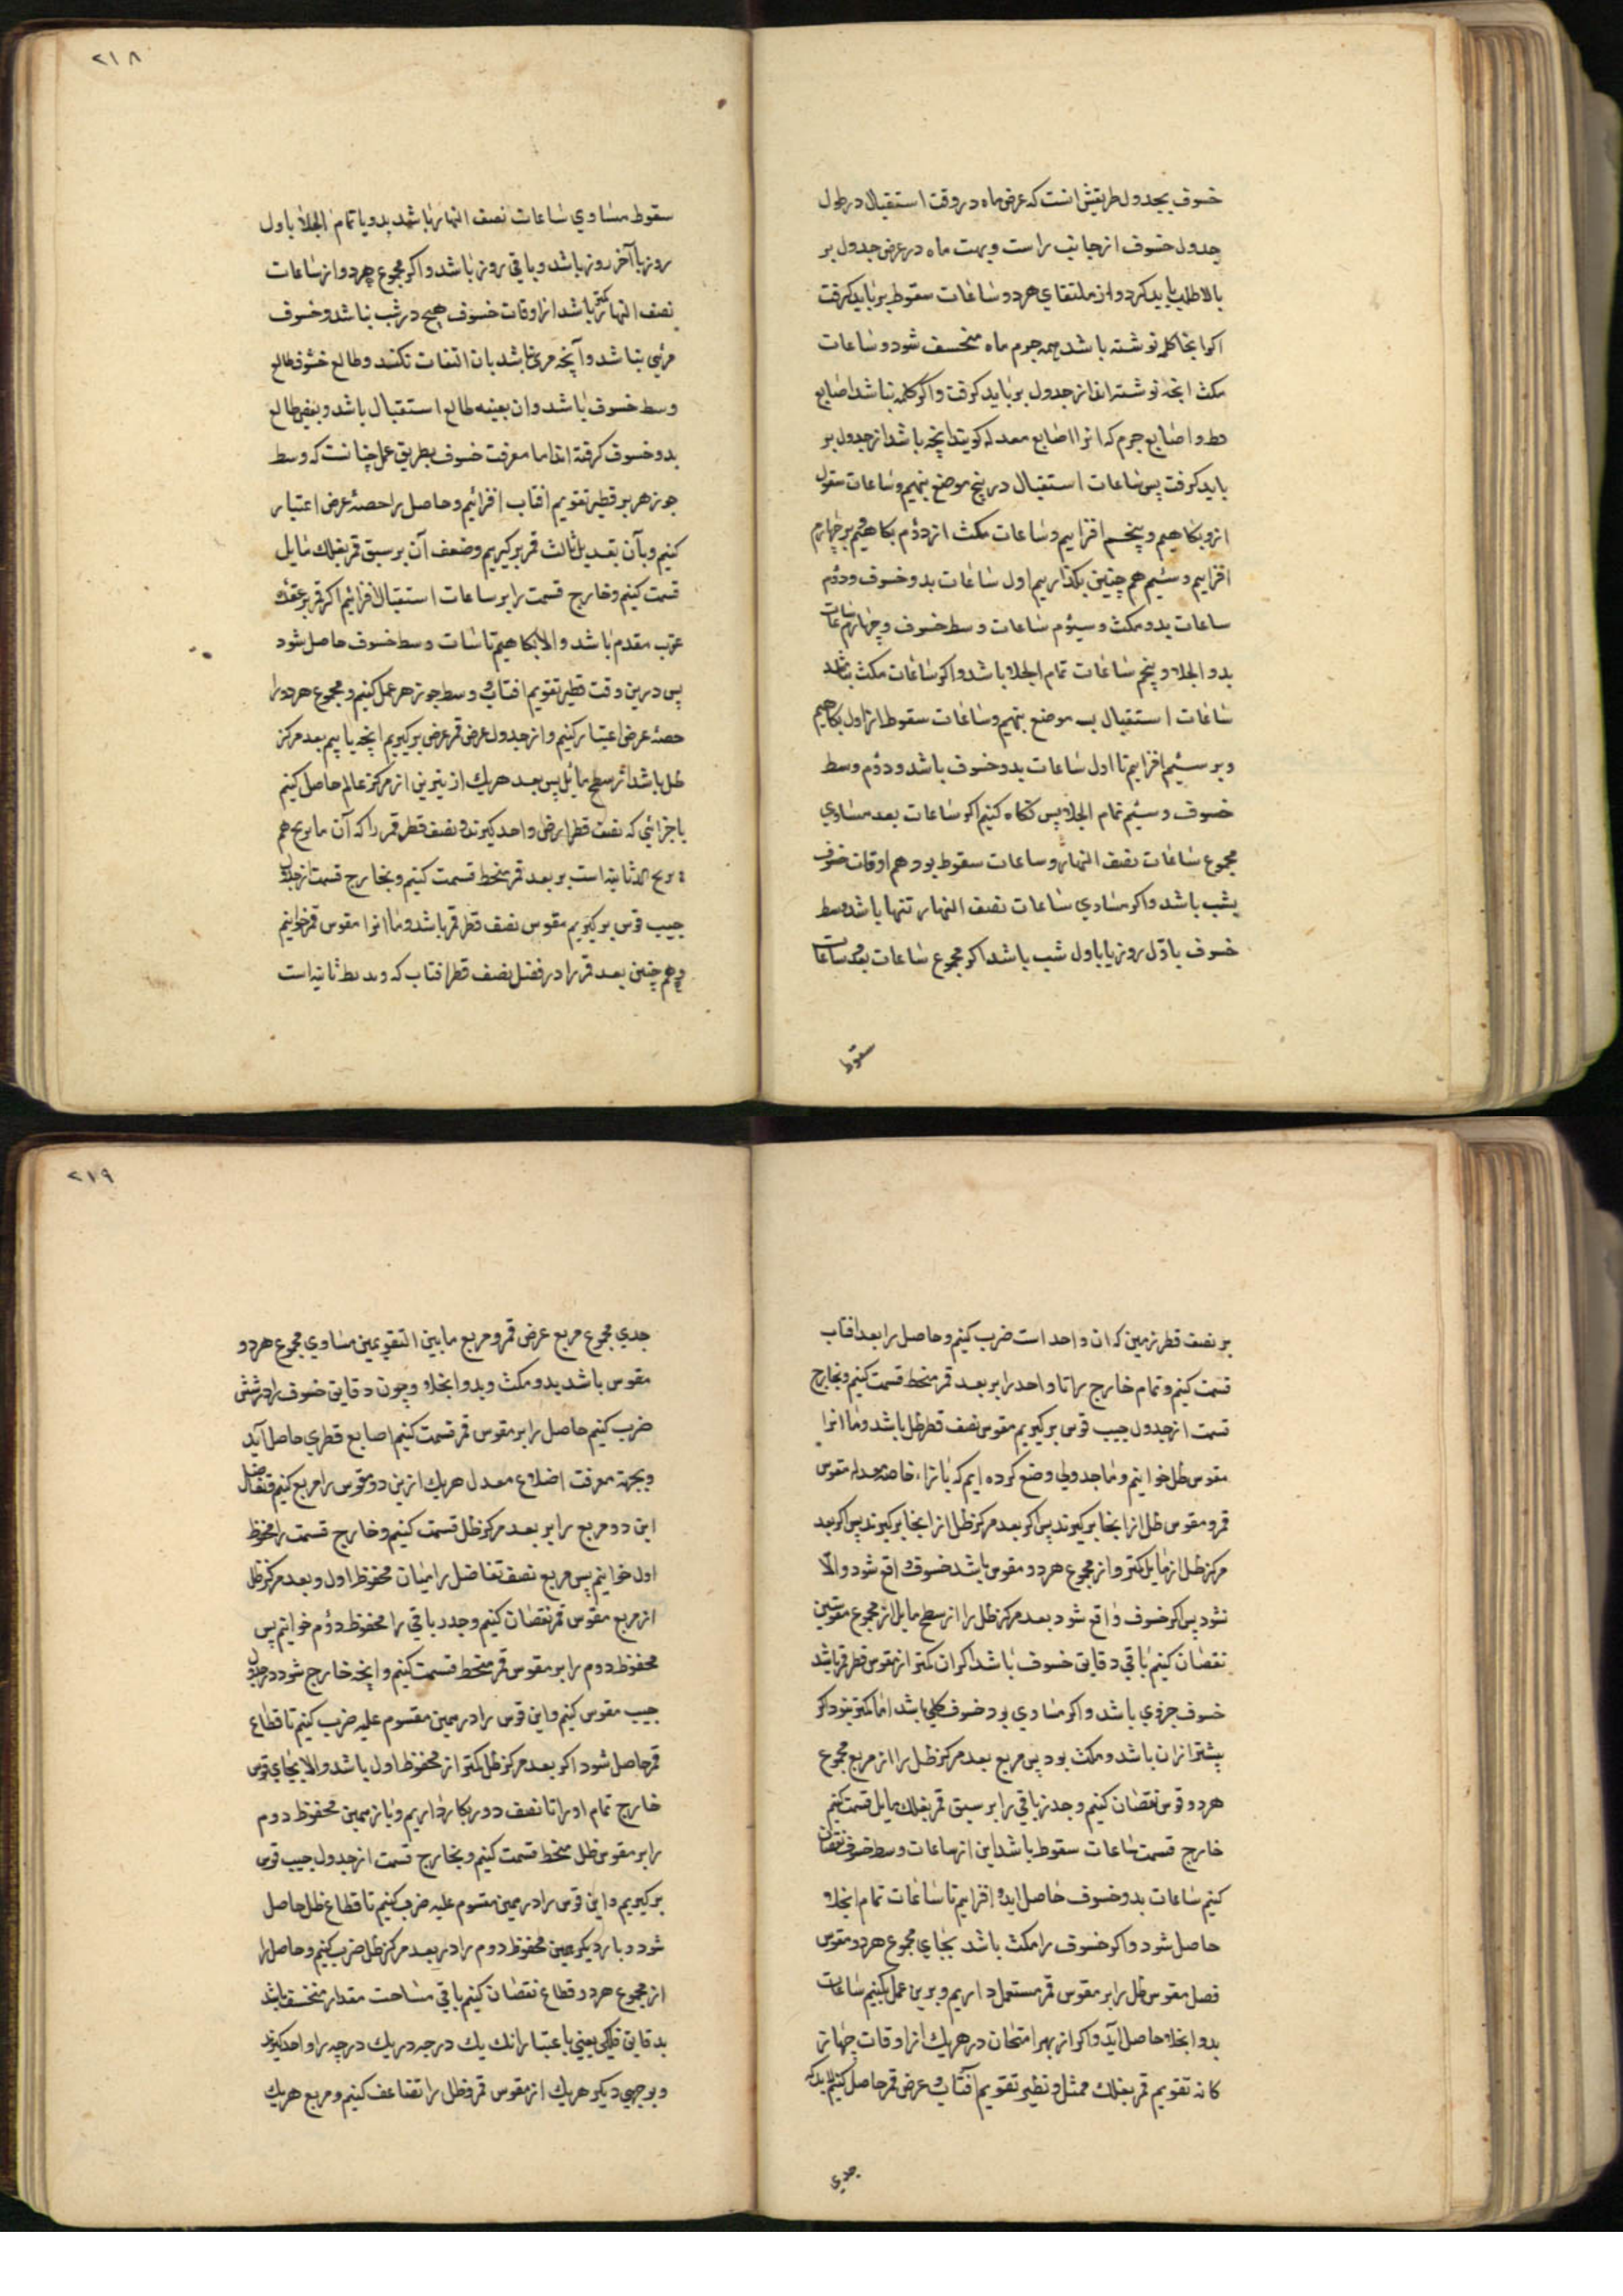 خسوف بجدول طریقش انست که عرض ماه در وقت استقبال در طول
جدول خسوف از جانب راست و بهت ماه در عرض جدول بر
بالا طلب باید کرد و از ملتقای هر دو ساعات سقوط بر باید کرفت
اکر انجا کلمه نوشته باشد همه جرم ماه منخسف شود و ساعات
مکث انچه نوشته اند از جدول بر باید کرفت و اکر کلمه نباشد اصابع
قطر و اصابع جرم که انرا اصابع معدله کویند انچه باشد از جدول بر
باید کرفت پس ساعات استقبال در پنج موضع بنهیم و ساعات سقوط
ازو بکاهیم و بر پنجم افزاییم و ساعات مکث از دوم بکاهیم و بر چهارم
افزاییم و سیم هم چنین بکذاریم اول ساعات بدو خسوف و دوم
ساعات بدو مکث و سیوم ساعات وسط خسوف و چهارم ساعات
بدو انجلا و پنجم ساعات تمام انجلا باشد و اکر ساعات مکث نباشد
ساعات استقبال بسه موضع بنهیم و ساعات سقوط از اول بکاهیم
و بر سیم افزاییم تا اول ساعات بدو خسوف باشد و دوم وسط
خسوف و سیم تمام انجلا پس نکاه کنیم اکر ساعات بعد مساوی
مجموع ساعات نصف النهار و ساعات سقوط بود هم اوقات خسوف
بشب باشد و اکر مساوی ساعات نصف النهار تنها باشد وسط
خسوف باول روز یا باول شب باشد اکر مجموع ساعات بعد و ساعات
سقوط
٢١٨
سقوط مساوی ساعات نصف النهار باشد بدو یا تمام انجلا باول
روز یا آخر روز باشد و باقی بروز باشد و اکر مجموع هر دو از ساعات
نصف النهار کمتر باشد از اوقات خسوف هیچ در شب نباشد و خسوف
مرئی نباشد و آنچه مرئی نباشد بان التفات نکنند و طالع خسوف طالع
وسط خسوف باشد و ان بعینه طالع استقبال باشد و بعضی طالع
بدو خسوف کرفته اند اما معرفت خسوف بطریق عمل چنانست که وسط
جوزهر بر نظیر تقویم افتاب افزائیم و حاصل را حصهٔ عرض اعتبار
کنیم و بآن تعدیل ثالث قمر بر کیریم و ضعف آن بر سبق قمر بفلک مایل
قسمت کنیم و خارج قسمت را بر ساعات استقبال افزائیم اکر قمر بر عقدهٔ
عرب مقدم باشد و الا بکاهیم تا ساعات وسط خسوف حاصل شود
پس درین وقت نظیر تقویم افتاب و وسط جوزهر عمل کنیم و مجموع هر دو را
حصهٔ عرض اعتبار کنیم و از جدول عرض قمر عرض بر کیریم انچه یابیم بعد مرکز
ظل باشد از سطح مایل پس بعد هریک از نیرین از مرکز عالم حاصل کنیم
باجزائی که نصف قطر ارض واحد کیرند و نصف قطر قمر را که آن
ثانیه است بر بعد قمر منحط قسمت کنیم و بخارج قسمت از جدول
جیب قوس بر کیریم مقوس نصف قطر قمر باشد و ما انرا مقوس قمر خوانیم
و هم چنین بعد قمر را در فضل نصف قطر افتاب که ثانیه است
بر نصف قطر زمین که ان واحد است ضرب کنیم و حاصل را بر بعد افتاب
قسمت کنیم و تمام خارج را تا واحد را بر بعد قمر منحط قسمت کنیم و بخارج
قسمت از جدول جیب قوس بر کیریم مقوس نصف قطر ظل باشد و ما انرا
مقوس ظل خوانیم و ما جدولی وضع کرده ایم که بازاء خاصه معدله مقوس
قمر و مقوس ظل از انجا بر کیرند پس اکر بعد مرکز ظل از انجا بر کیرند پس اکر بعد
مرکز ظل از مایل کمتر و از مجموع هر دو مقوس باشد خسوف واقع شود و الا
نشود پس اکر خسوف واقع شود بعد مرکز ظل را از سطح مایل از مجموع مقوسین
نقصان کنیم باقی دقایق خسوف باشد اکر ان کمتر از مقوس قطر قمر باشد
خسوف جزوی باشد و اکر مساوی بود خسوف کلی باشد اما مکث نبود و اکر
بیشتر از ان باشد و مکث بود پس مربع بعد مرکز ظل را از مربع مجموع
هر دو قوس نقصان کنیم و جذر باقی را بر سبق قمر بفلک مایل قسمت کنیم
خارج قسمت ساعات سقوط باشد این از ساعات وسط خسوف نقصان
کنیم ساعات بدو خسوف حاصل اید و افزاییم تا ساعات تمام انجلا
حاصل شود و اکر خسوف را مکث باشد بجای مجموع هر دو مقوس
فضل مقوس ظل را بر مقوس قمر مستعمل داریم و برین عمل بکنیم ساعات
بدو انجلا حاصل آید و اکر از بهر امتحان در هریک از اوقات چهار
کانه تقویم قمر بفلک ممثل و نظیر تقویم آفتاب و عرض قمر حاصل کنیم لابد که
جدی
٢١٩
جدی مجموع مربع عرض قمر و مربع ما بین التقویمین مساوی مجموع هر دو
مقوس باشد بدو مکث و بدو انجلا و چون دقایق خسوف را در شش
ضرب کنیم حاصل را بر مقوس قمر قسمت کنیم اصابع قطری حاصل آید
و بجهة معرفت اضلاع معدل هریک ازین دو مقوس را مربع کنیم و تفاضل
این دو مربع را بر بعد مرکز ظل قسمت کنیم و خارج قسمت را محفوظ
اول خوانیم پس مربع نصف تفاضل را میان محفوظ اول و بعد مرکز ظل
از مربع مقوس قمر نقصان کنیم و جذر باقی را محفوظ دوم خوانیم پس
محفوظ دوم را بر مقوس قمر منحط قسمت کنیم و انچه خارج شود در جدول
جیب مقوس کنیم و این قوس را در همین مقسوم علیه ضرب کنیم تا قطاع
قمر حاصل شود اکر بعد مرکز ظل کمتر از محفوظ اول باشد و الا بجای قوس
خارج تمام او را تا نصف دور بکار داریم و باز همین محفوظ دوم
را بر مقوس ظل منحط قسمت کنیم و بخارج قسمت از جدول جیب قوس
بر کیریم و این قوس را در همین مقسوم علیه ضرب کنیم تا قطاع ظل حاصل
شود و بار دیکر همین محفوظ دوم را در بعد مرکز ظل ضرب کنیم و حاصل را
از مجموع هر دو قطاع نقصان کنیم باقی مساحت مقدار منخسف باشد
بدقایق فلکی یعنی باعتبار انک یک درجه در یک درجه را واحد کیرند
و بوجهی دیکر هریک از مقوس قمر و ظل را تضاعف کنیم و مربع هریک